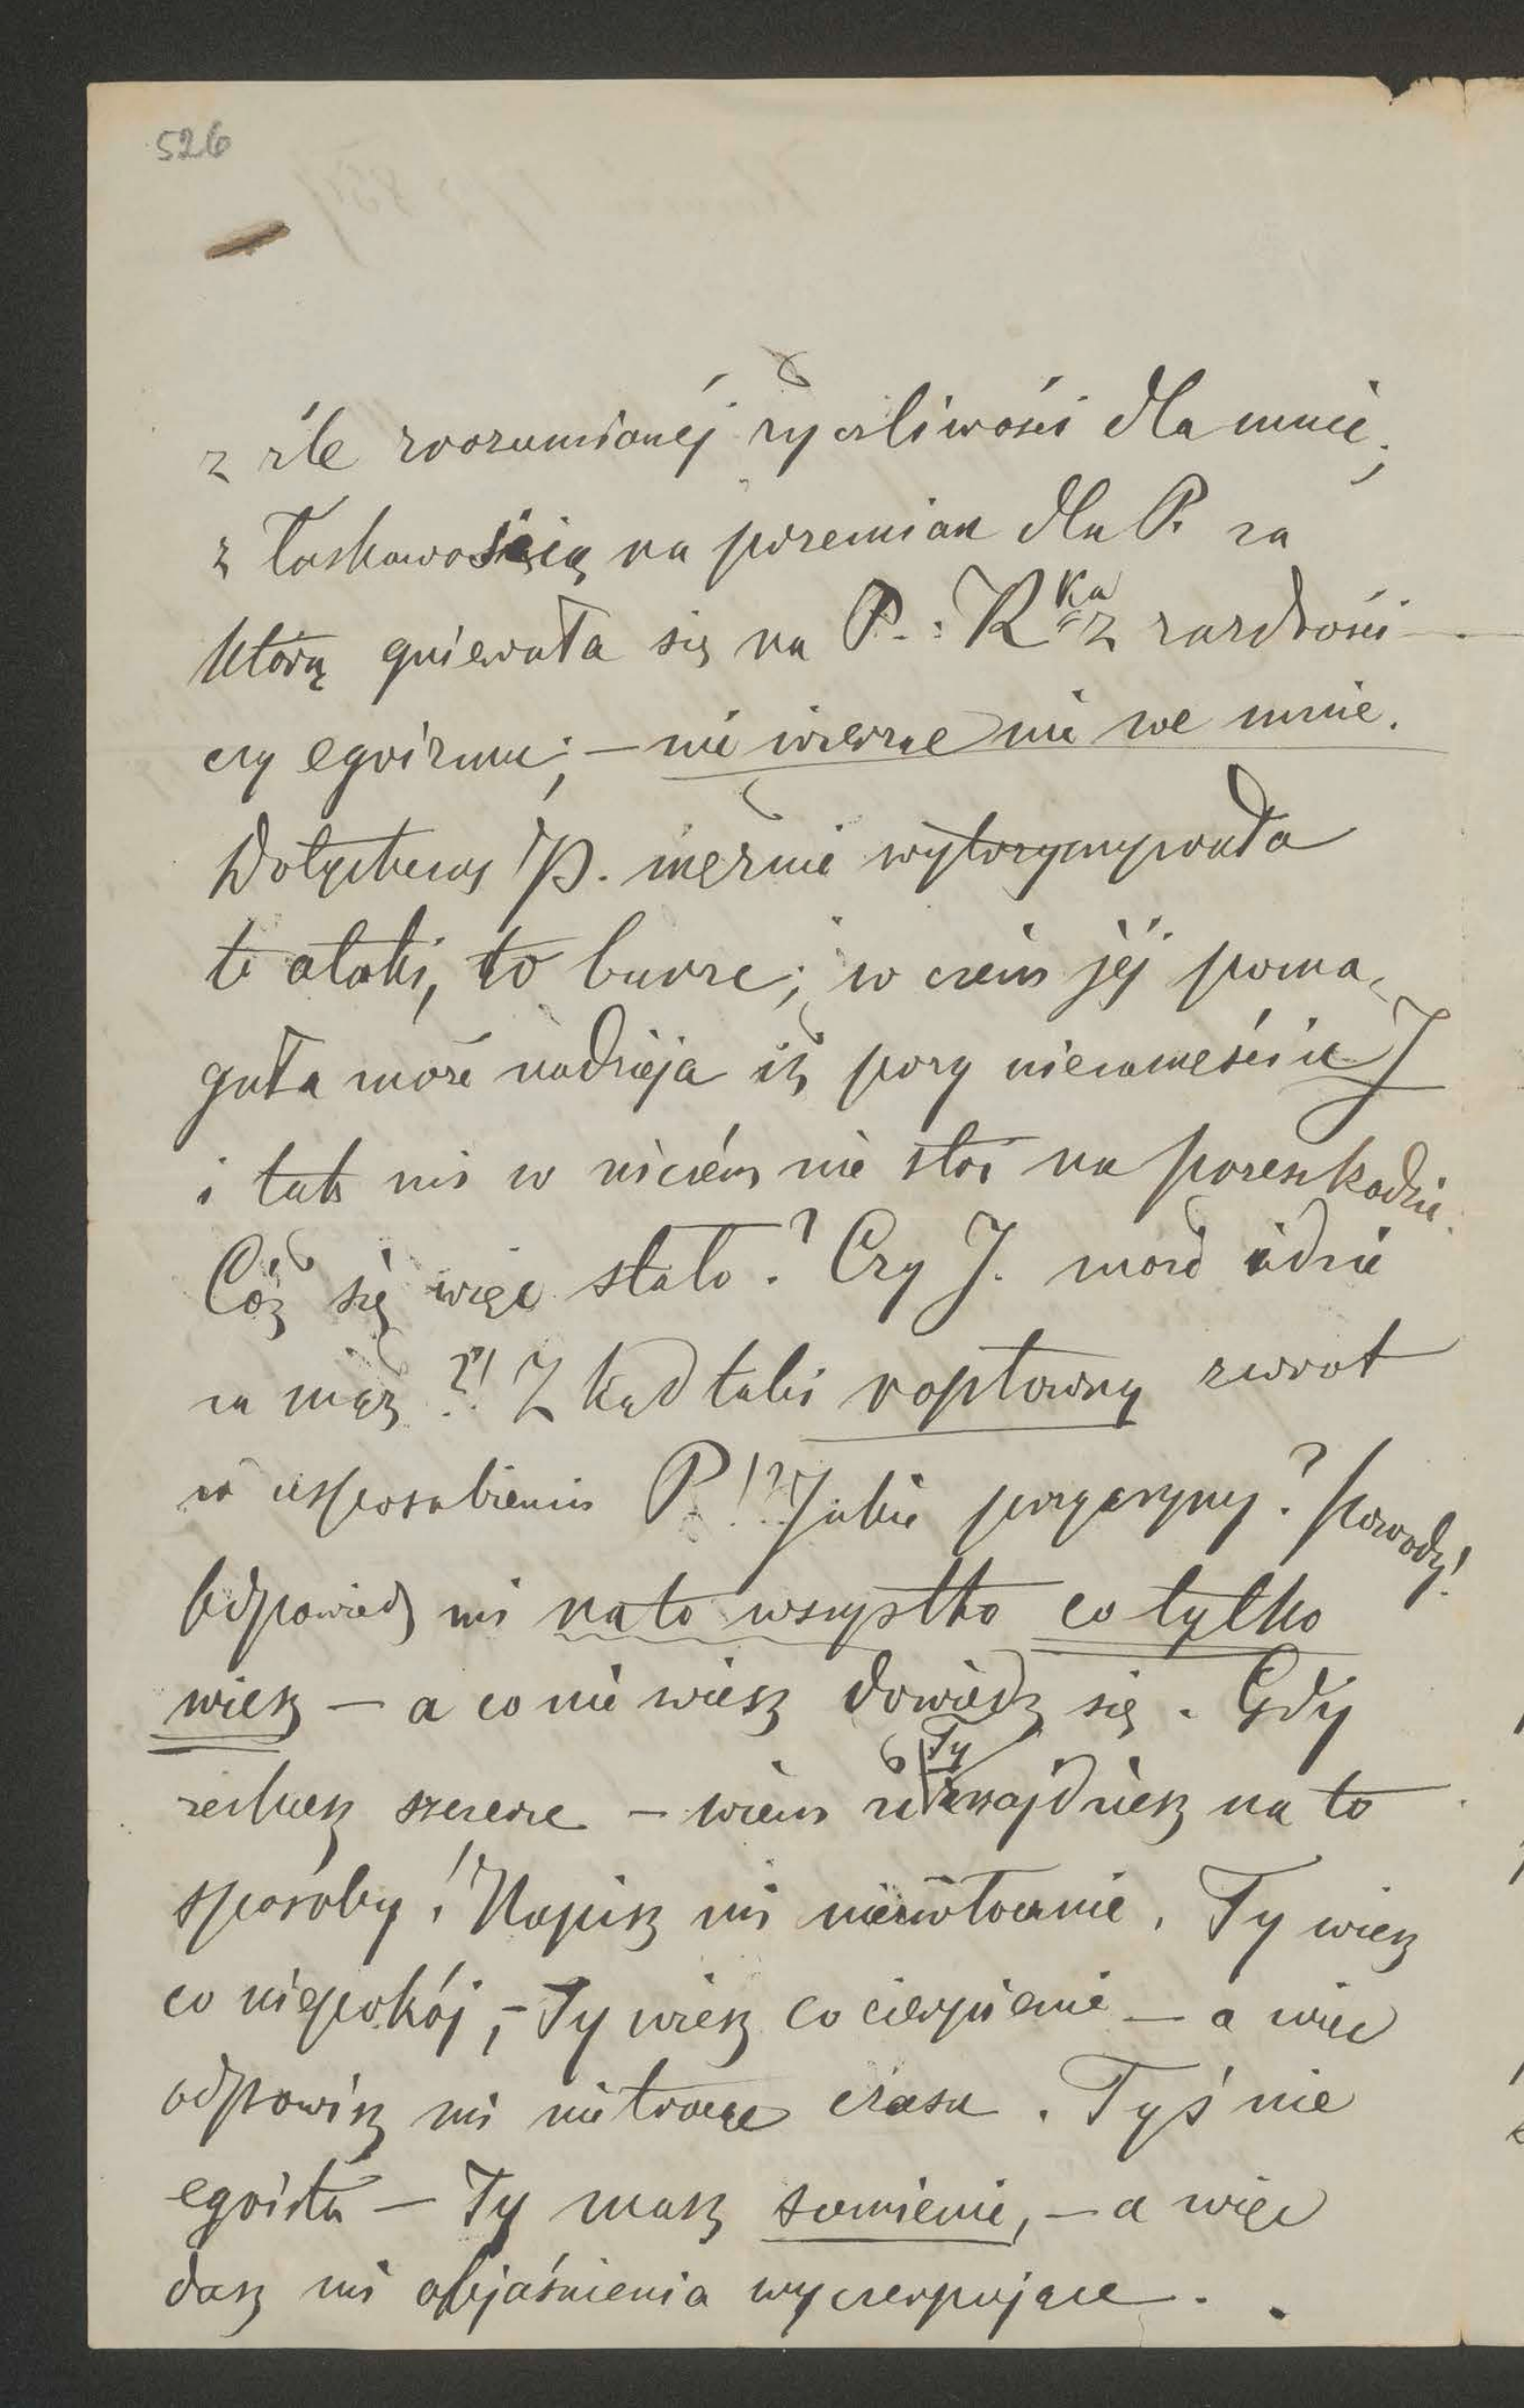 526
z źle zrozumianéj życzliwości dla mnie;
z łaskawością na przemian dla P. za
którą gniewała się na P.: R<sup>ka</sup> z zazdrości —
czy egoizmu; — nie wierzę nie we mnie.
Dotychczas P. mężnie wytrzymywała
te ataki, te burze; w czem jéj poma-
gała może nadzieja iż przy niezamęściu J
i tak mi w niczém nie stoi na przeszkodzie.
Cóż się więc stało? Czy J. może idzie
za mąż?! Zkąd taki raptowny zwrot
w usposobieniu P.!? Jakie przyczyny? Powody!
Odpowiedz mi na to wszystko co tylko
wiesz — a co nie wiesz dowiedz się. Gdy
zechcesz szczerze — wiem że Ty znajdziesz na to
sposoby! Napisz mi niezwłocznie. Ty wiesz
co niepokój, — Ty wiesz co cierpienie — a więc
odpowisz mi nie tracąc czasu. Tyś nie
egoista — Ty masz sumienie, — a więc
dasz mi objaśnienia wyczerpujące.